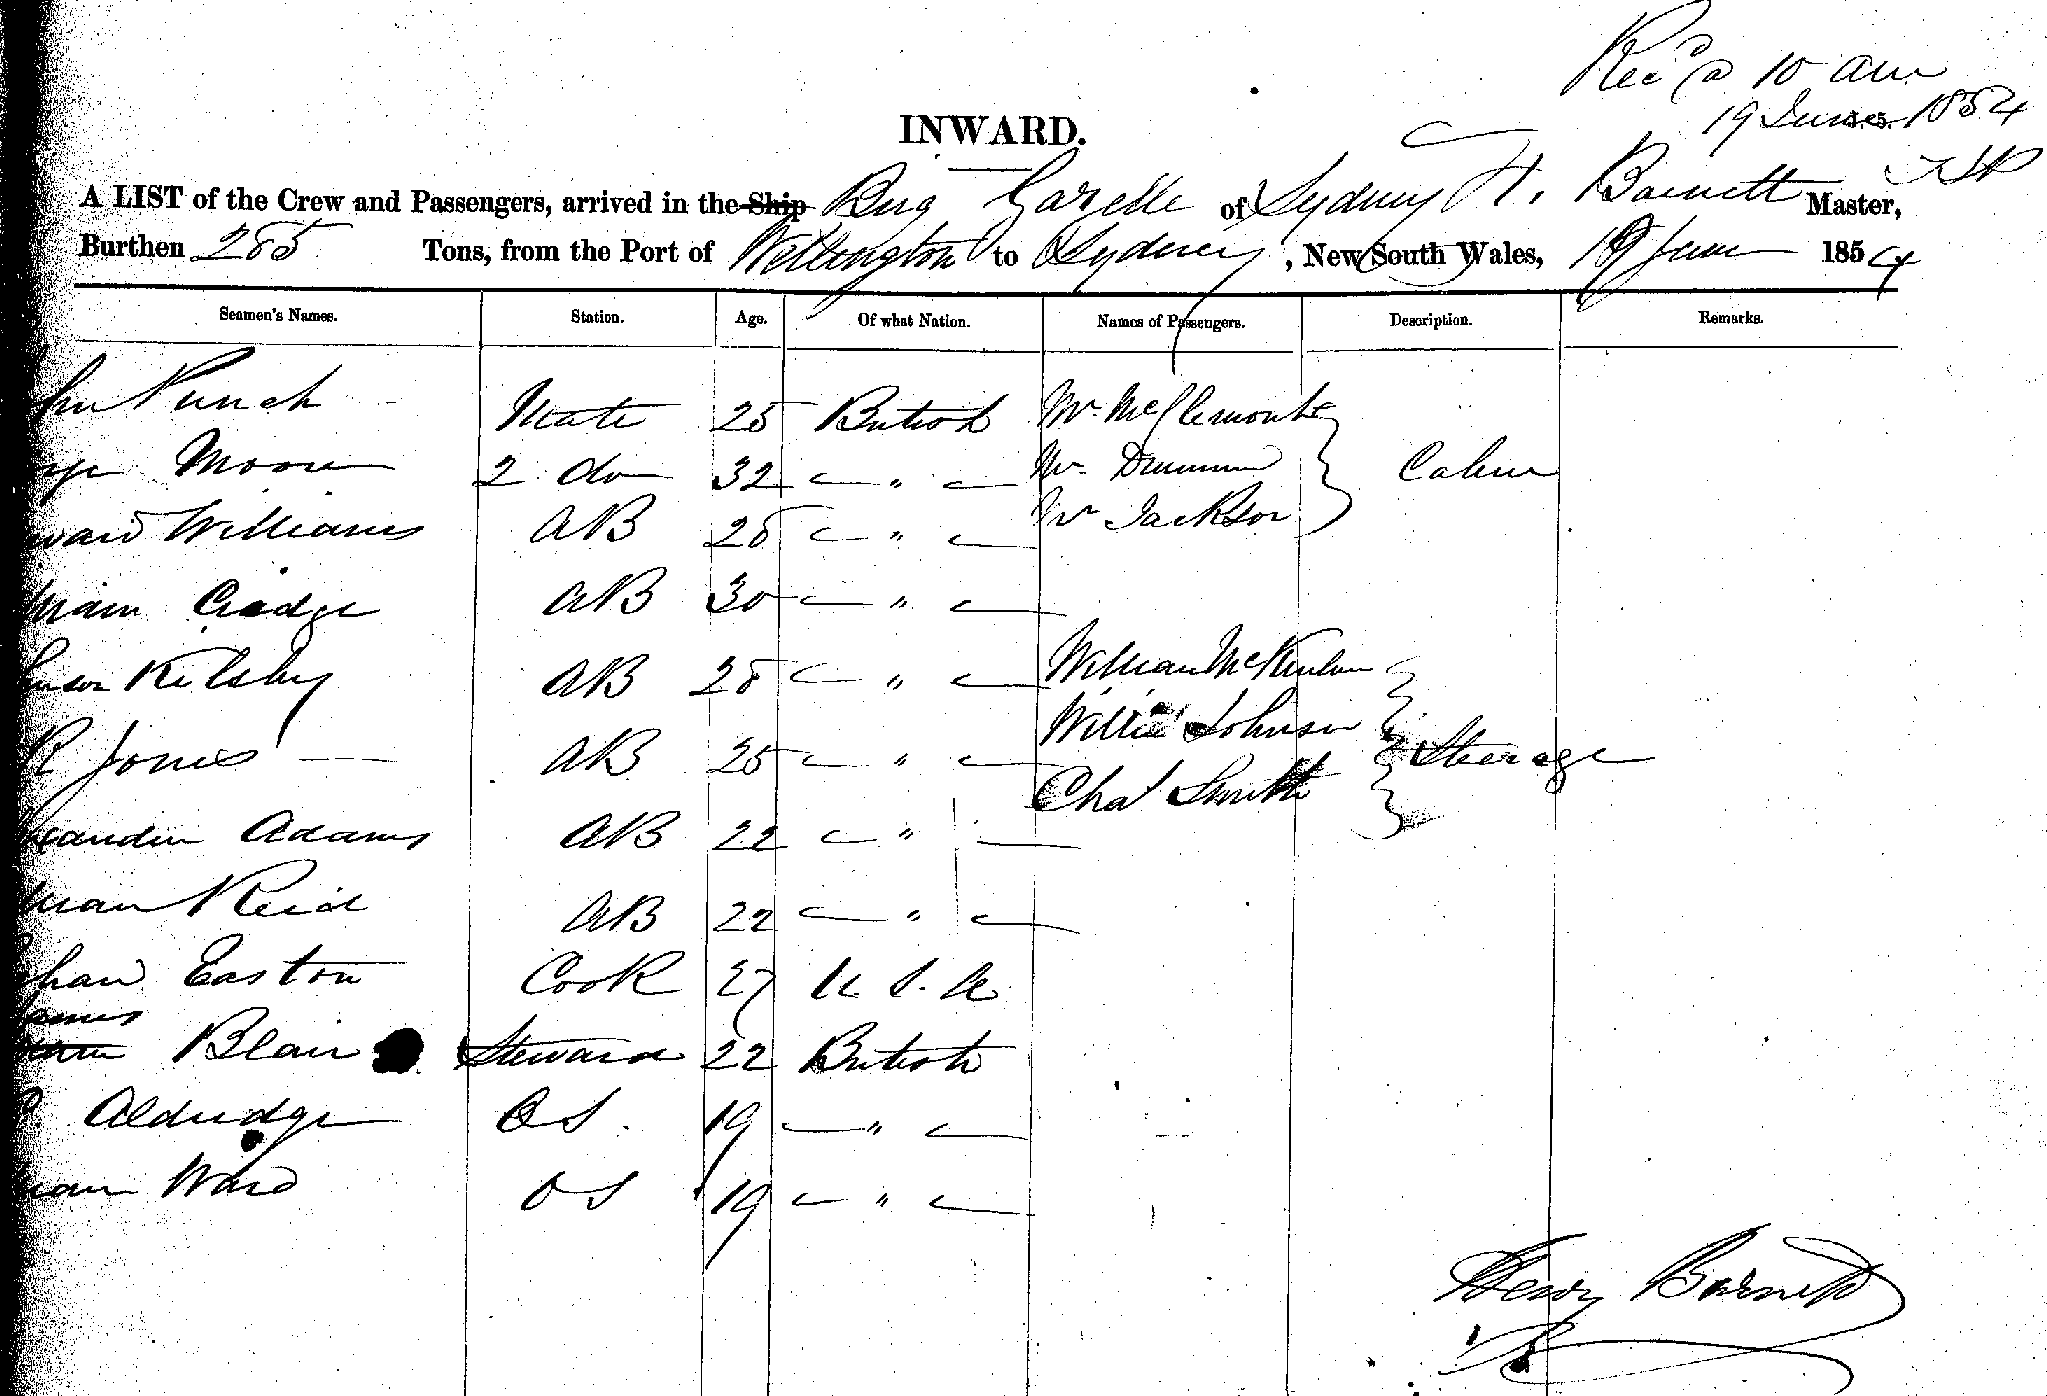 Rec'd 10 am
19 June 1854
INWARD.
A LIST of the Crew and Passengers, arrived in the Ship Brig Gazelle of Sydney H. Barnett Master,
Burthen 285 Tons, from the Port of Wellington to Sydney, New South Wales, 19 June 1854
Seamen's Names. Station. Age. Of what Nation. Names of Passengers. Description. Remarks.
Punch Mate 25 British Mr. McClemont
Moore 2 do 32 " Mr. Cabin
Williams AB 28 " Mr Jackson
AB 30 "
Kilsby AB 28 " William
R Jones AB 25 " Johnson Steerage
Adams AB 22 " Chas Smith
Reid AB 22 "
Easton Cook 27 U. S. A.
James
Blair Steward 22 British
Aldridge OS 19 "
Ward OS 19 "
Henry Barnett